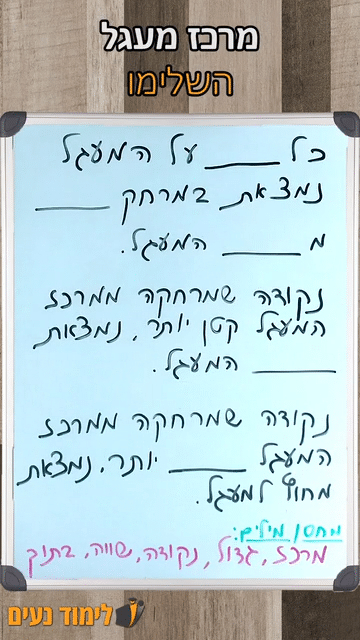 מרכז מעגל
השלימו
כל _____ על המעגל
נמצאת במרחק _____
מ _____ המעגל.
נקודה שמרחקה ממרכז
המעגל קטן יותר, נמצאת
_____ המעגל.
נקודה שמרחקה ממרכז
המעגל _____ יותר, נמצאת
מחוץ למעגל.
מחסן מילים:
מרכז, גדול, נקודה, שווה, בתוך
לימוד נעים